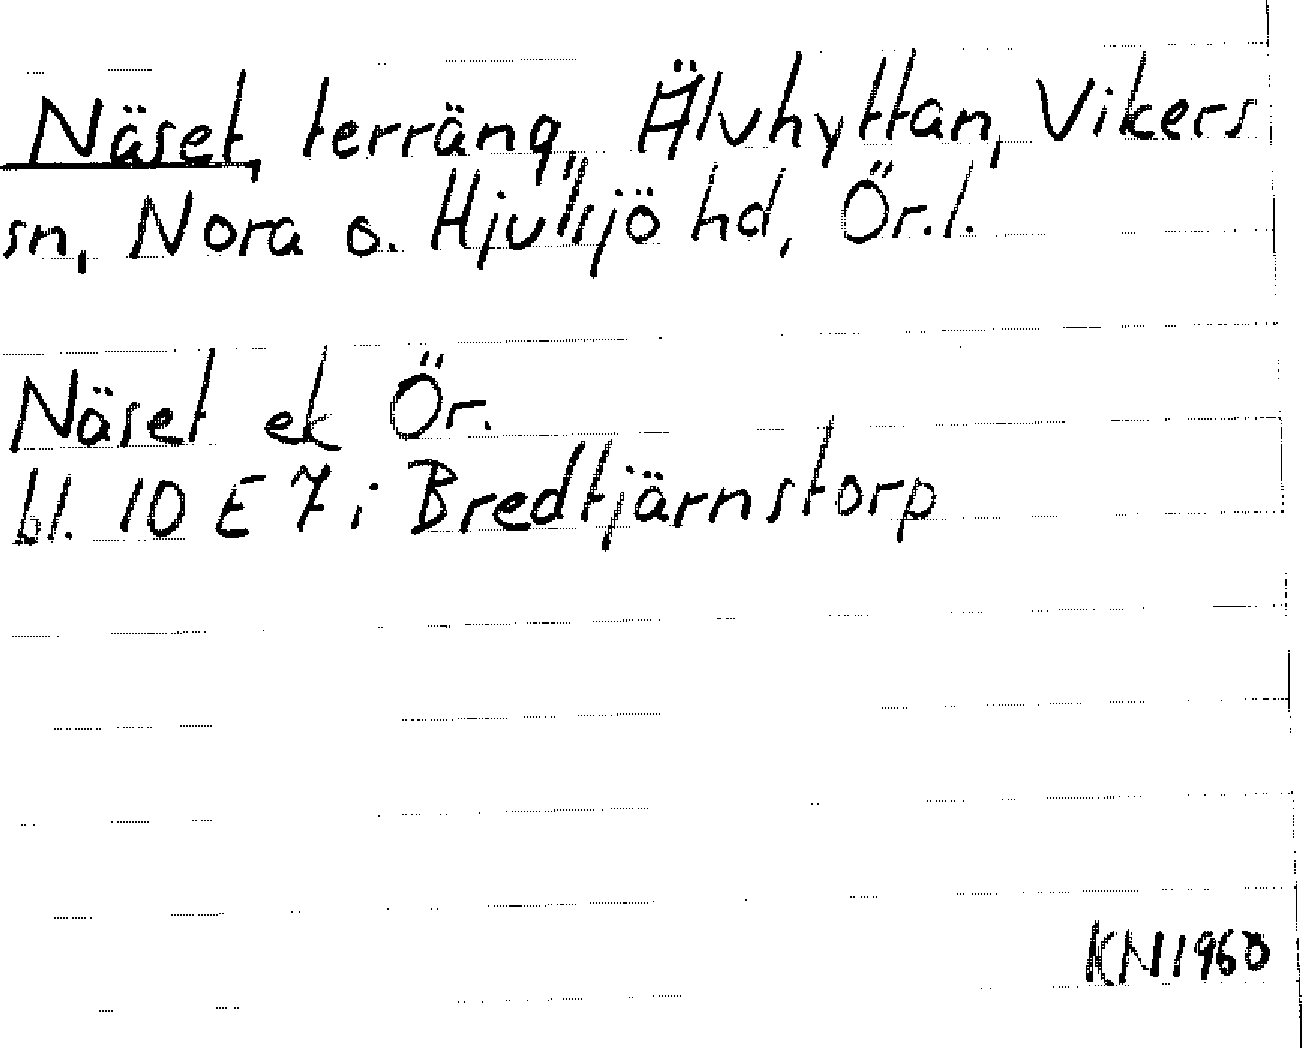 Näset, terräng, Älvhyttan, Vikers
sn, Nora o. Hjulsjö hd, Ör.l.
Näset ek Ör.
bl. 10 E 7 i Bredtjärnstorp
KN 1960